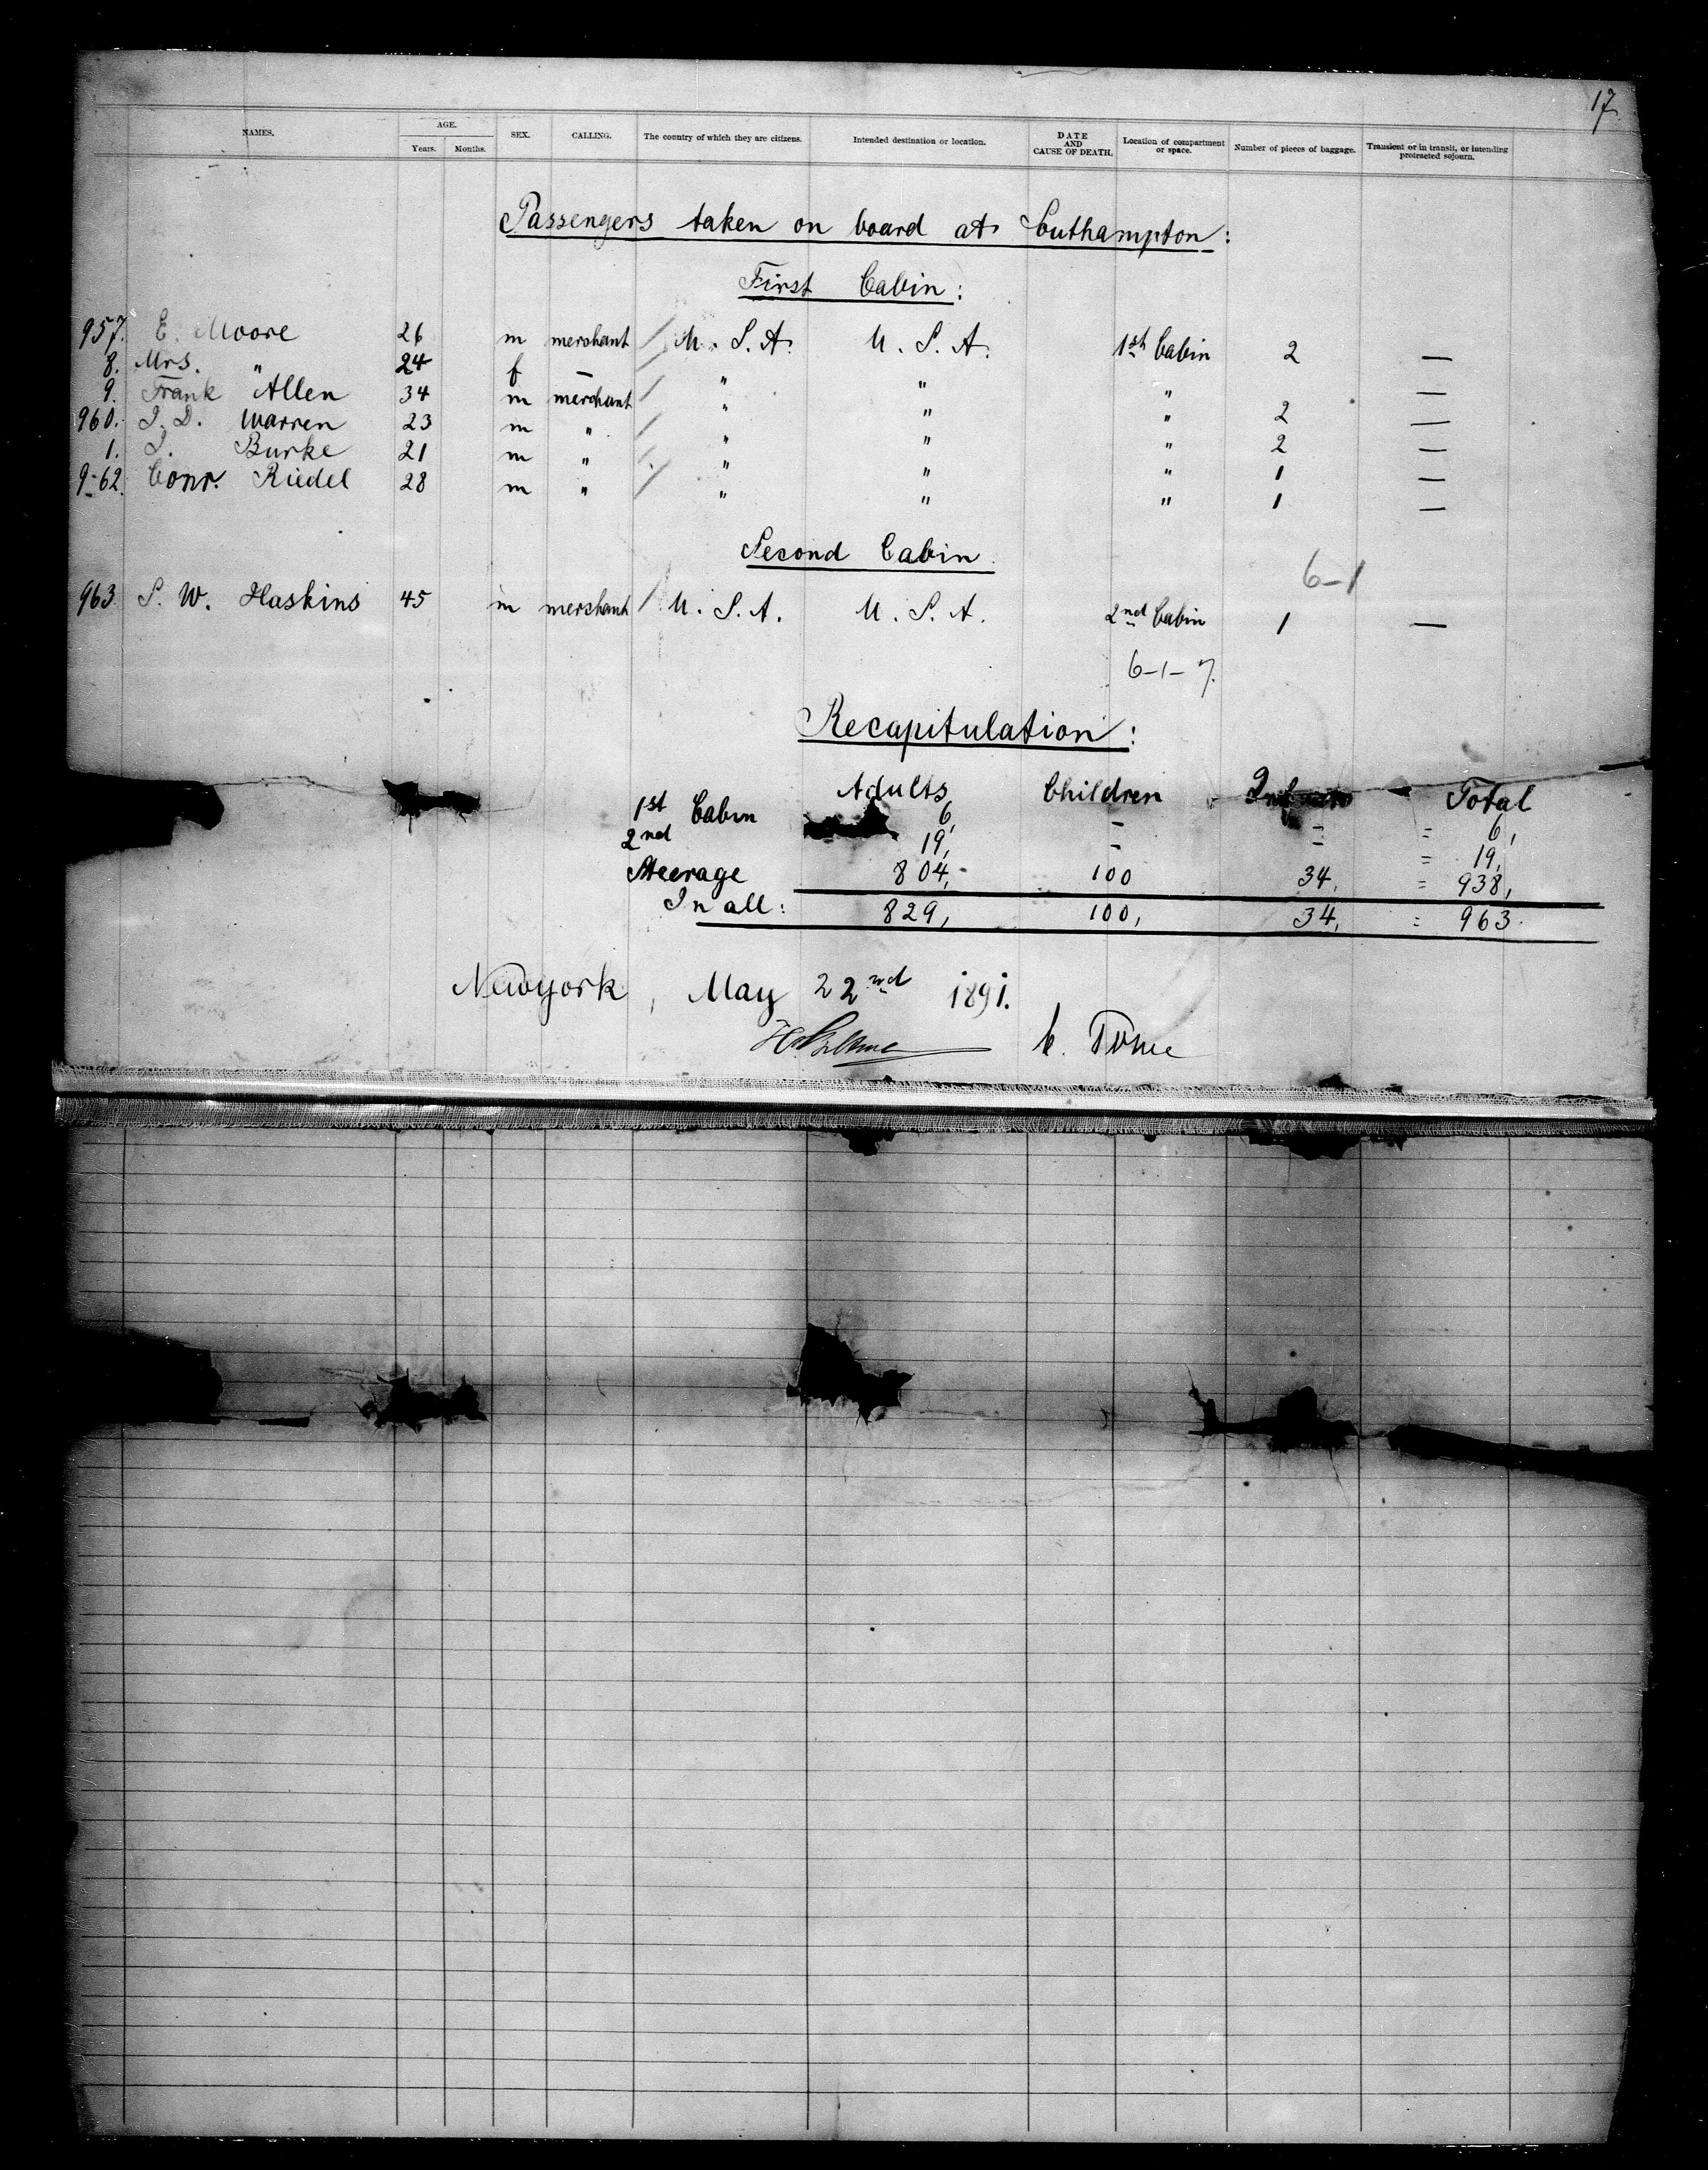 17
NAMES. AGE. Years. Months. SEX. CALLING. The country of which they are citizens. Intended destination or location. DATE AND CAUSE OF DEATH. Location of compartment or space. Number of pieces of baggage. Transient or in transit, or intending protracted sojourn.
Passengers taken on board at Southampton:
First Cabin:
957. E. Moore 26 m merchant / U. S. A. U. S. A. 1st Cabin 2 —
8. Mrs. " 24 f — / " " " —
9. Frank Allen 34 m merchant / " " " 2 —
960. J. D. Warren 23 m " / " " " 2 —
1. J. Burke 21 m " / " " " 1 —
9-62. Conr. Riedel 28 m " / " " " 1 —
Second Cabin
6-1
963 S. W. Haskins 45 m merchant / U. S. A. U. S. A. 2nd Cabin 1 —
6-1-7.
Recapitulation:
Adults Children Total
1st Cabin 6, - - = 6,
2nd 19, - - = 19,
Steerage 804,- 100 34, = 938,
In all: 829, 100, 34, = 963.
Newyork, May 22nd 1891.